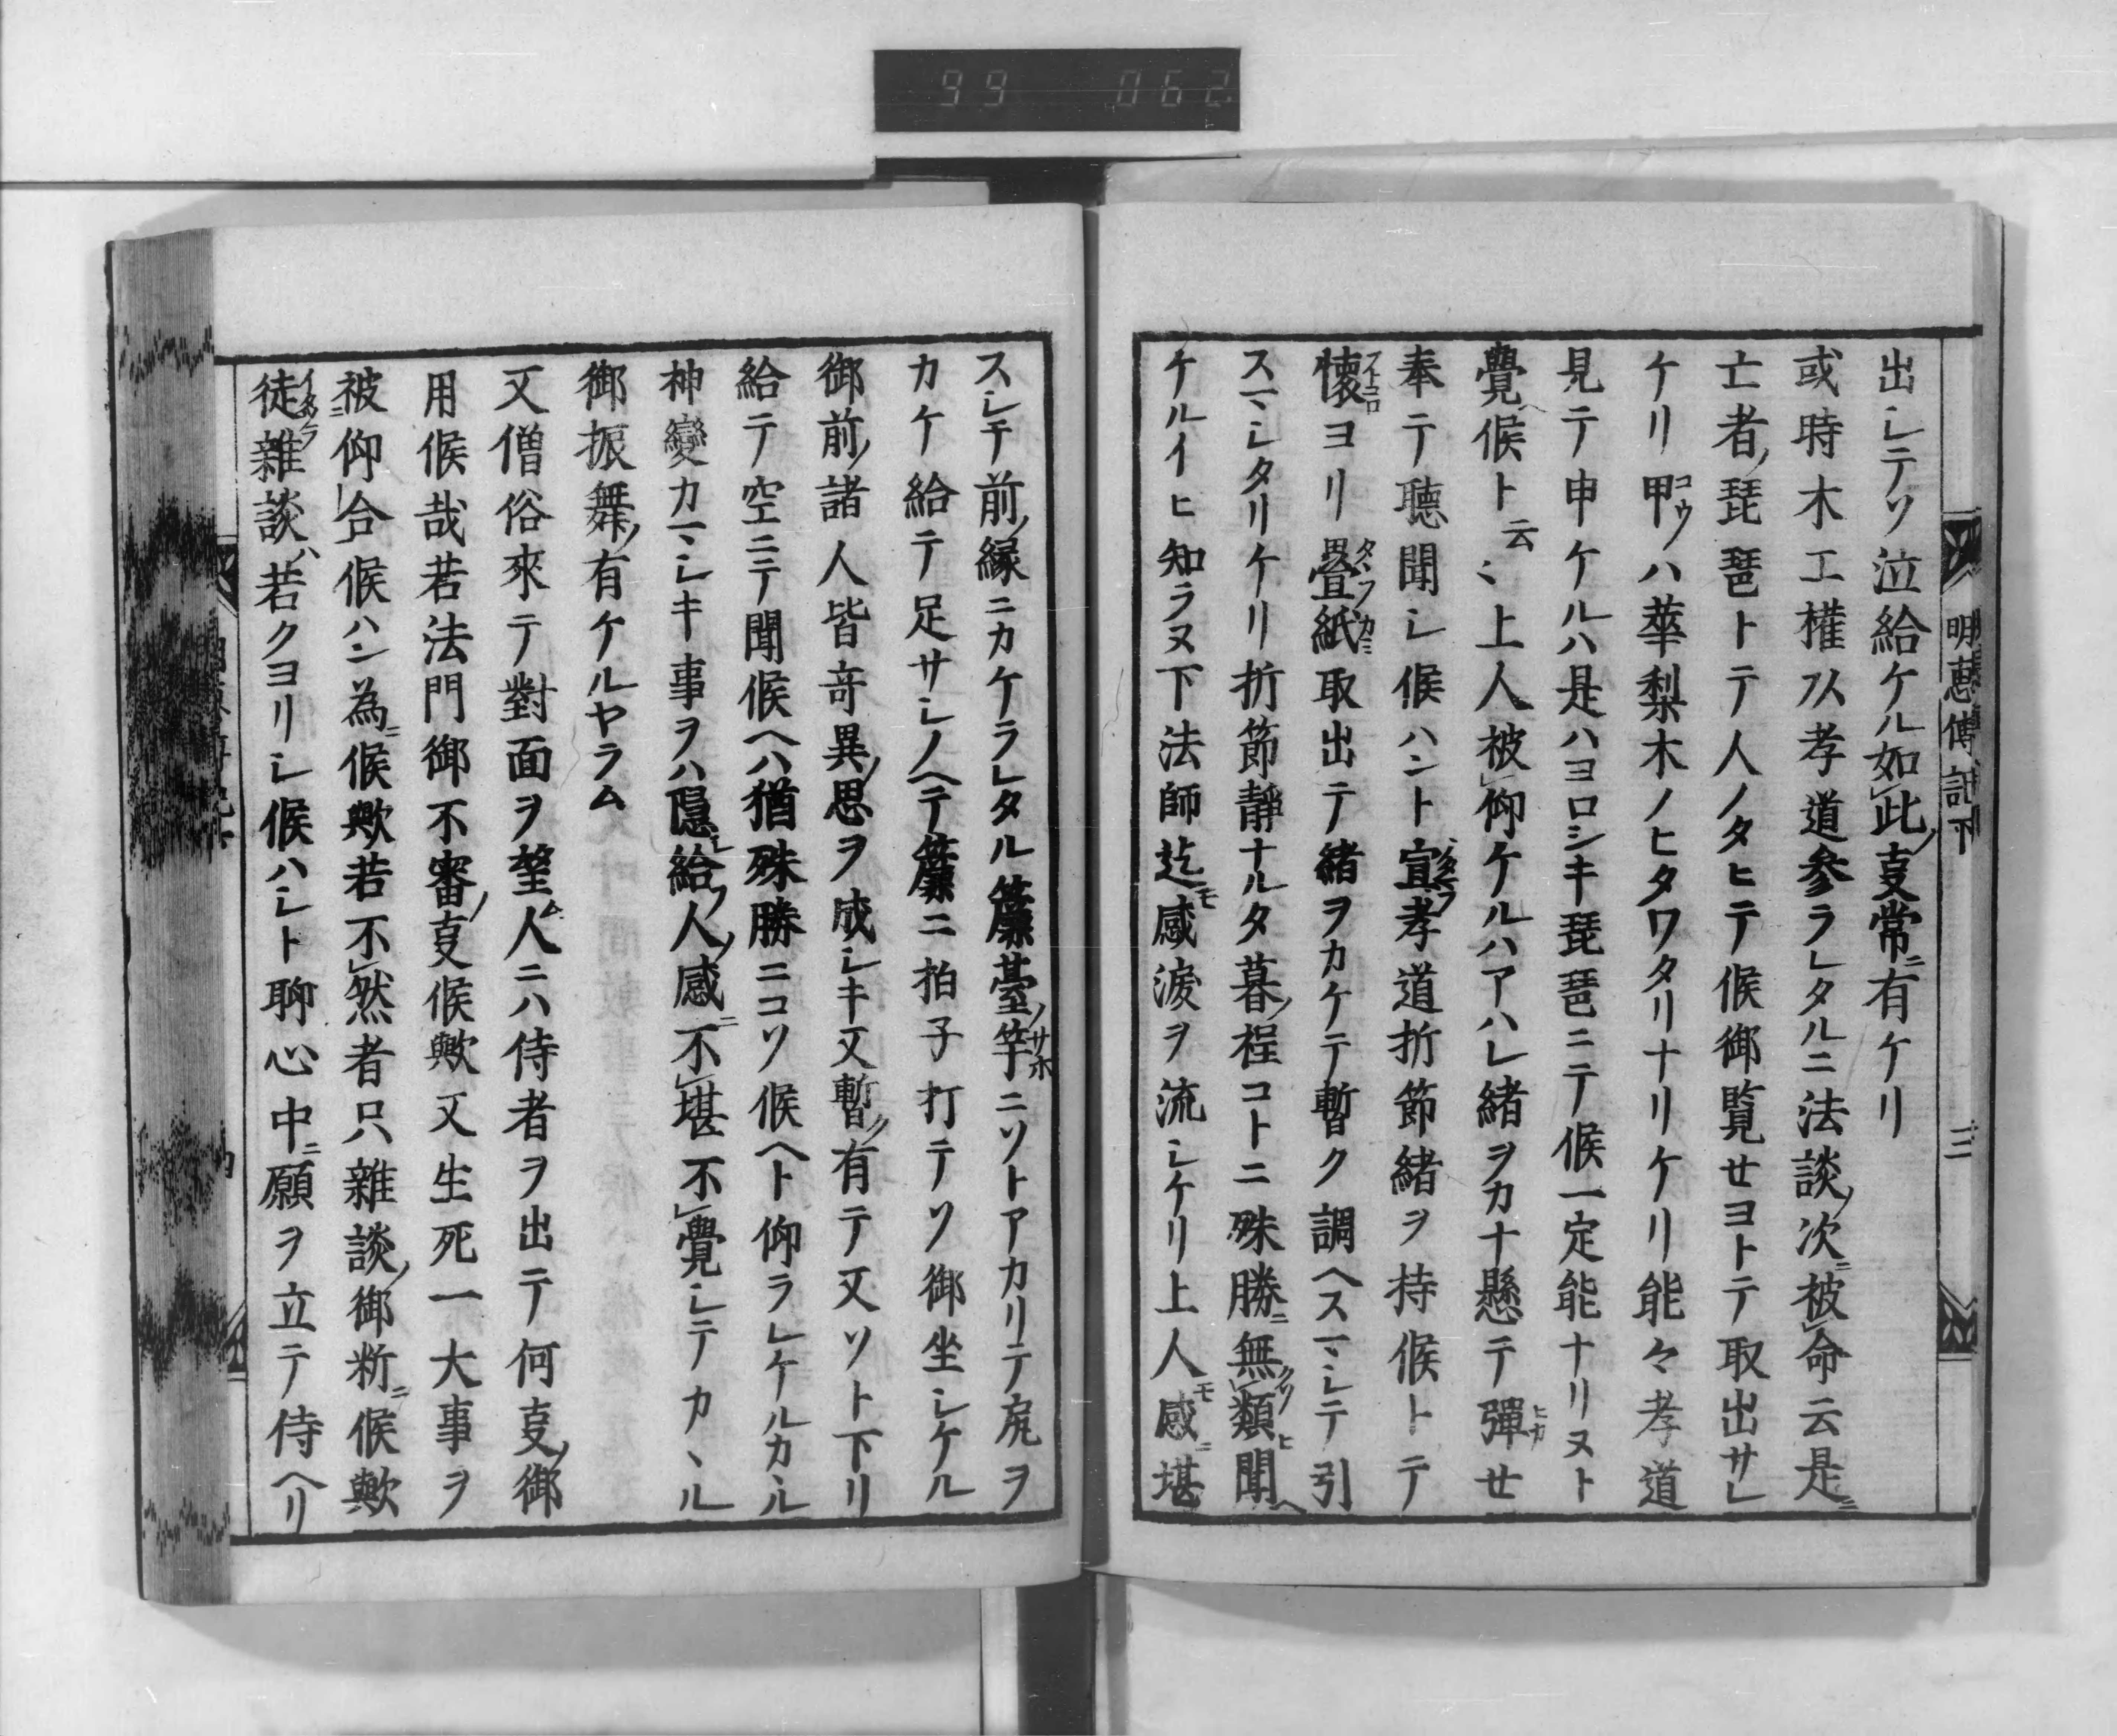 99 062
明惠傳記下 三
出シテソ泣給ケル如此ノ㕝常ニ有ケリ
或時木工權以孝道參ラレタルニ法談ノ次ニ被命云是ニ
亡者ノ琵琶トテ人ノタヒテ候御覧セヨトテ取出サレ
ケリ甲コウノハ華梨木ノヒタワタリナリケリ能々孝道
見テ申ケルハ是ハヨロシキ琵琶ニテ候一定能ナリヌト
覺ヘ候ト云〻上人被仰ケルハアハレ緒ヲカナ懸テ彈ヒカセ
奉テ聽聞シ候ハント宣ノタマフ孝道折節緒ヲ持候トテ
懷フトコロヨリ疊紙タヽフカミ取出テ緒ヲカケテ暫ク調ヘスマシテ引
スマシタリケリ折節靜ナルタ暮ノ程コトニ殊勝ニ無類タクヒ聞ヘ
ケルイヒ知ラヌ下法師迄モ感淚ヲ流シケリ上人モ感ニ堪
スシテ前ノ縁ニカケラレタル簾臺ノ竿サホニソトアカリテ尻ヲ
カケ給テ足サシノヘテ簾ニ拍子打テソ御坐シケル
御前ノ諸人皆奇異ノ思ヲ成シキ又暫ノ有テ又ソト下リ
給テ空ニテ聞候ヘハ猶殊勝ニコソ候ヘト仰ラレケルカヽル
神變カマシキ事ヲハ隱シ給フ人ノ感ニ不堪不覺シテカヽル
御振舞ノ有ケルヤラム
又僧俗來テ對面ヲ望ム人ニハ侍者ヲ出テ何㕝ノ御
用候哉若法門御不審ノ㕝候歟又生死一大事ヲ
被仰合候ハン為ニ候歟若不然者只雜談ノ御料ニ候歟
徒イタツラニ雜談ハ若クヨリシ候ハシト聊心中ニ願ヲ立テ侍ヘリ